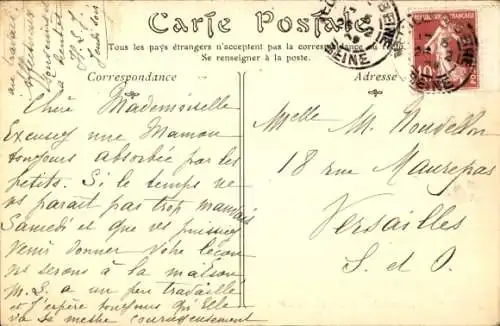 Carte Postale
Tous les pays étrangers n'acceptent pas la correspondance au
Se renseigner à la poste.
Correspondance
Adresse
RÉPUBLIQUE FRANÇAISE
10
SEINE
SEINE
Chère Mademoiselle
Excusez une Maman
toujours absorbée par les
petits. Si le temps ne
vs parait pas trop mauvais
Samedi et que vs puissiez
venir donner votre leçon
ns serons à la maison
M. S. a un peu travaillé
et j'espère toujours qu'Elle
va se mettre courageusement
au travail.
Affectueux
à bientôt
Jeudi soir
Melle M.
18 rue Maurepas
Versailles
S. et O.